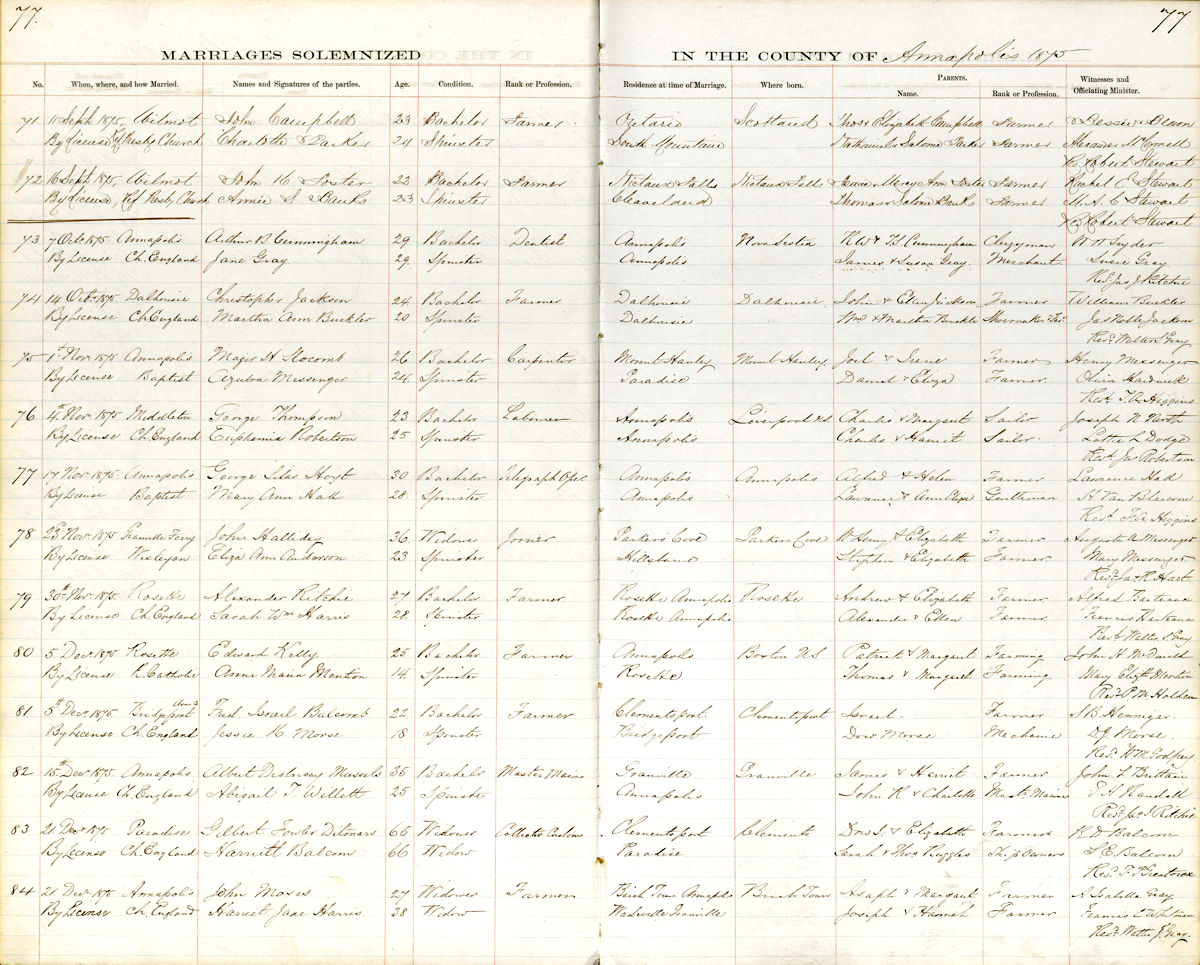 77.
77
MARRIAGES SOLEMNIZED
IN THE COUNTY OF Annapolis 1875
No. When, where, and how Married. Names and Signatures of the parties. Age. Condition. Rank or Profession. Residence at time of Marriage. Where born. PARENTS. Name. Rank or Profession. Witnesses and Officiating Minister.
71 11 Sept 1875, Wilmot John Campbell 23 Bachelor Farmer Ontario Scotland Thos & Elizabeth Campbell Farmer
By License Ref Presby Church Charlotte Parker 24 Spinster South Mountain Nathaniel & Salome Parker Farmer Alexander
Robert Stewart
72 16 Sept 1875, Wilmot John H Foster 22 Bachelor Farmer Nictaux Falls Nictaux Falls Isaac & Mercy Ann Foster Farmer Rachel E Stewart
By License Ref Presby Church Annie S Banks 23 Spinster Cleaveland Thomas & Salome Banks Farmer M. A. C Stewart
Robert Stewart
73 7 Oct 1875 Annapolis Arthur B Cunningham 29 Bachelor Dentist Annapolis Nova Scotia Cunningham Clergyman W H Snyder
By License Ch. England Jane Gray 29 Spinster Annapolis James & Susan Gray Merchant Susie Gray
Revd. Jas J Ritchie
74 14 Octr 1875 Dalhousie Christopher Jackson 24 Bachelor Farmer Dalhousie Dalhousie John & Eliza Jackson Farmer William Buckler
By License Ch. England Martha Ann Buckler 20 Spinster Dalhousie Wm & Martha Buckler Shoemaker Jas Noble Jackson
Revd. Walter Gray
75 1st Nov. 1875 Annapolis Major H Slocomb 26 Bachelor Carpenter Mount Hanley Mount Hanley Joel & Irene Farmer Messenger
By License Baptist Azubra Messenger 24 Spinster Paradise Daniel & Eliza Farmer Olivia Hardwick
Revd. T A Higgins
76 4th Nov. 1875 Middleton George Thompson 23 Bachelor Labourer Annapolis Liverpool NS Charles & Margaret Sailor Joseph N North
By License Ch. England Euphemia Robertson 25 Spinster Annapolis Charles & Harriet Sailor Lottie L Dodge
Revd Jas Robertson
77 17 Nov. 1875 Annapolis George Silas Hoyt 30 Bachelor Telegraph Oper. Annapolis Annapolis Alfred & Helen Farmer Lawrence Hall
By License Baptist Mary Ann Hall 28 Spinster Annapolis Lawrence & Ann Eliza Gentleman H Van Blarcom
Revd. T A Higgins
78 23d Nov. 1875 Granville Ferry John Halliday 36 Widower Joiner Parkers Cove Parkers Cove W Henry & Elizabeth Farmer Augusta A Messenger
By License Wesleyan Eliza Ann Anderson 23 Spinster Hillsburn Stephen & Elizabeth Farmer Mary Messenger
Revd. Jas R Hart
79 30th Nov. 1875 Rosette Alexander Ritchie 27 Bachelor Farmer Rosette Annapolis Rosette Andrew & Elizabeth Farmer Alfred Berteaux
By License Ch. England Sarah Wm Harris 28 Spinster Rosette Annapolis Alexander & Ellen Farmer Francis Berteaux
Revd Walter S Gray
80 5 Decr 1875 Rosette Edward Kelly 25 Bachelor Farmer Annapolis Boston U.S Patrick & Margaret Farming John H McDonald
By License R. Catholic Anne Maria Mention 14 Spinster Rosette Thomas & Margaret Farming Mary Elizth Mention
Revd. P M Holden
81 5th Decr 1875 Bridgeport Fred Israel Balcomb 22 Bachelor Farmer Clementsport Clementsport Israel Farmer S B Hennigar
By License Ch. England Jessie H Morse 18 Spinster Bridgeport Dow Morse Mechanic D J Morse
Revd. W M Godfrey
82 15th Decr 1875 Annapolis Albert Desbrisay Mussels 35 Bachelor Master Marine Granville Granville James & Harriet Farmer John L Brittain
By License Ch. England Abigail T Willett 25 Spinster Annapolis John R & Charlotte Master Marine E H Randall
Revd Jas J Ritchie
83 21 Decr 1875 Paradise Gilbert Fowler Ditmars 65 Widower Collector Customs Clementsport Clements Dow I. & Elizabeth Farmers R D Balcom
By License Ch. England Harriett Balcom 66 Widow Paradise Sarah & Thos Ruggles Ship Owners S E Balcom
Revd.
84 21 Decr 1875 Annapolis John Moses 27 Widower Farmer Birch Town Annapolis Birch Town Asaph & Margaret Farmer A Isabella Gray
By License Ch. England Harriet Jane Harris 38 Widow Granville Joseph & Hannah Farmer Francis Whitman
Revd. Walter S Gray.